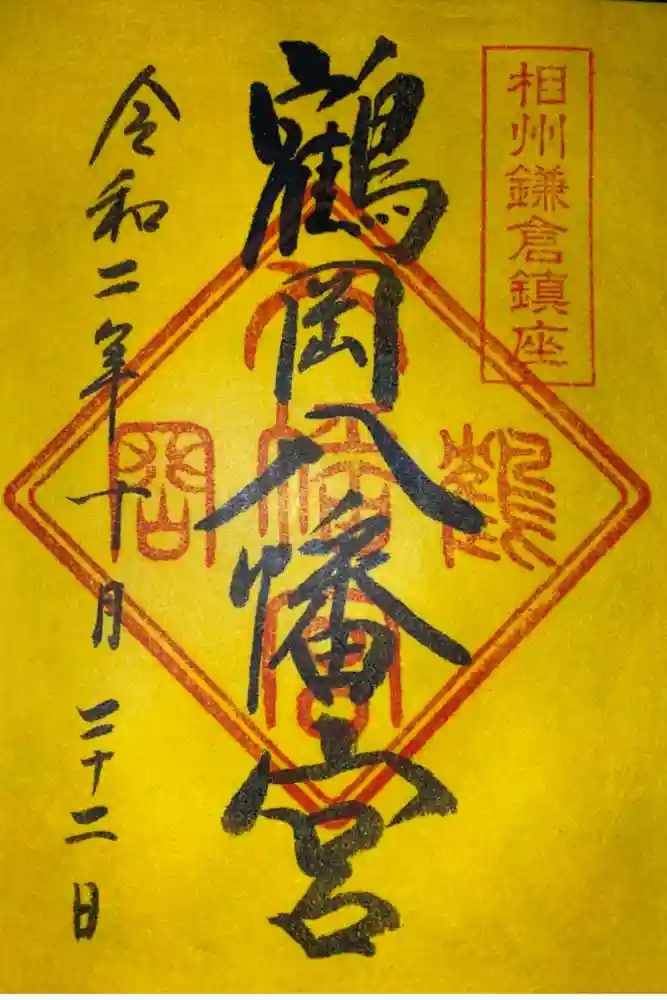 相州鎌倉鎮座
鶴岡八幡宮
令和二年十月二十二日
鶴
八幡
岡
宮